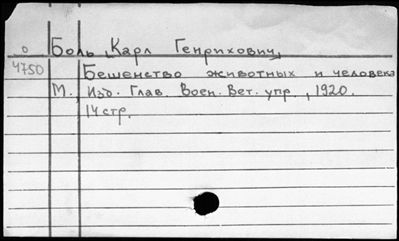 о Боль, Карл Генрихович,
4750 Бешенство животных и человека
М., Изд. Глав. Воен. Вет. упр., 1920.
14 стр.